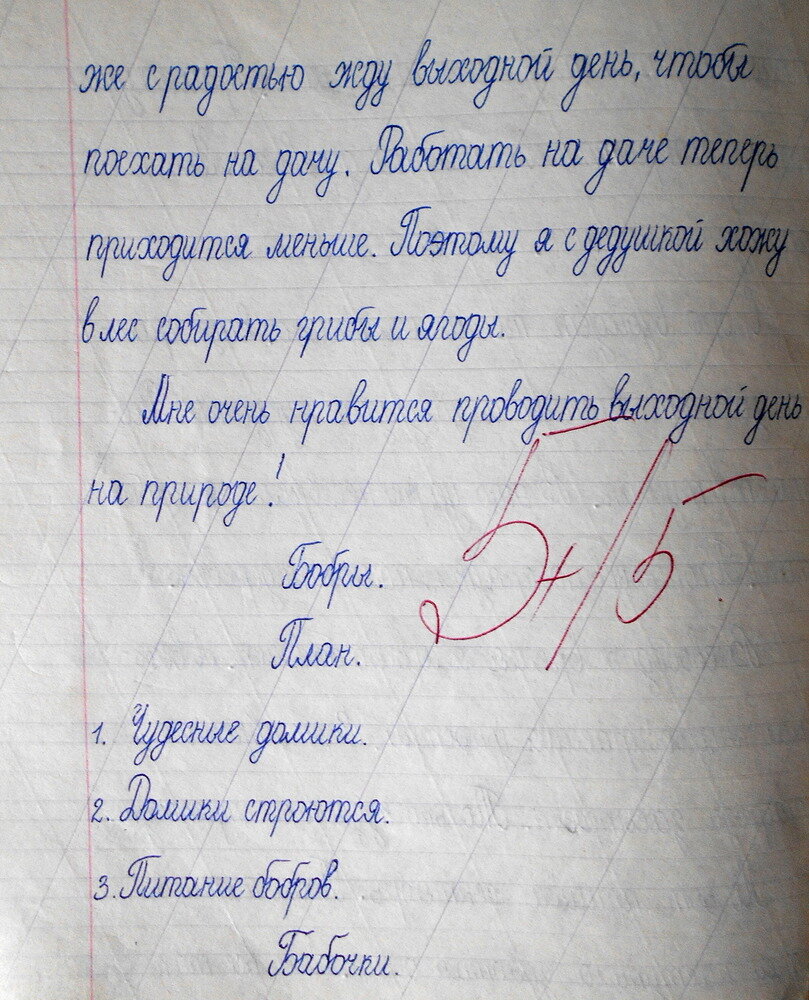 же с радостью жду выходной день, чтобы
поехать на дачу. Работать на даче теперь
приходится меньше. Поэтому я с дедушкой хожу
в лес собирать грибы и ягоды.
Мне очень нравится проводить выходной день
на природе!
5+/5
Бобры.
План.
1. Чудесные домики.
2. Домики строются.
3. Питание бобров.
Бабочки.